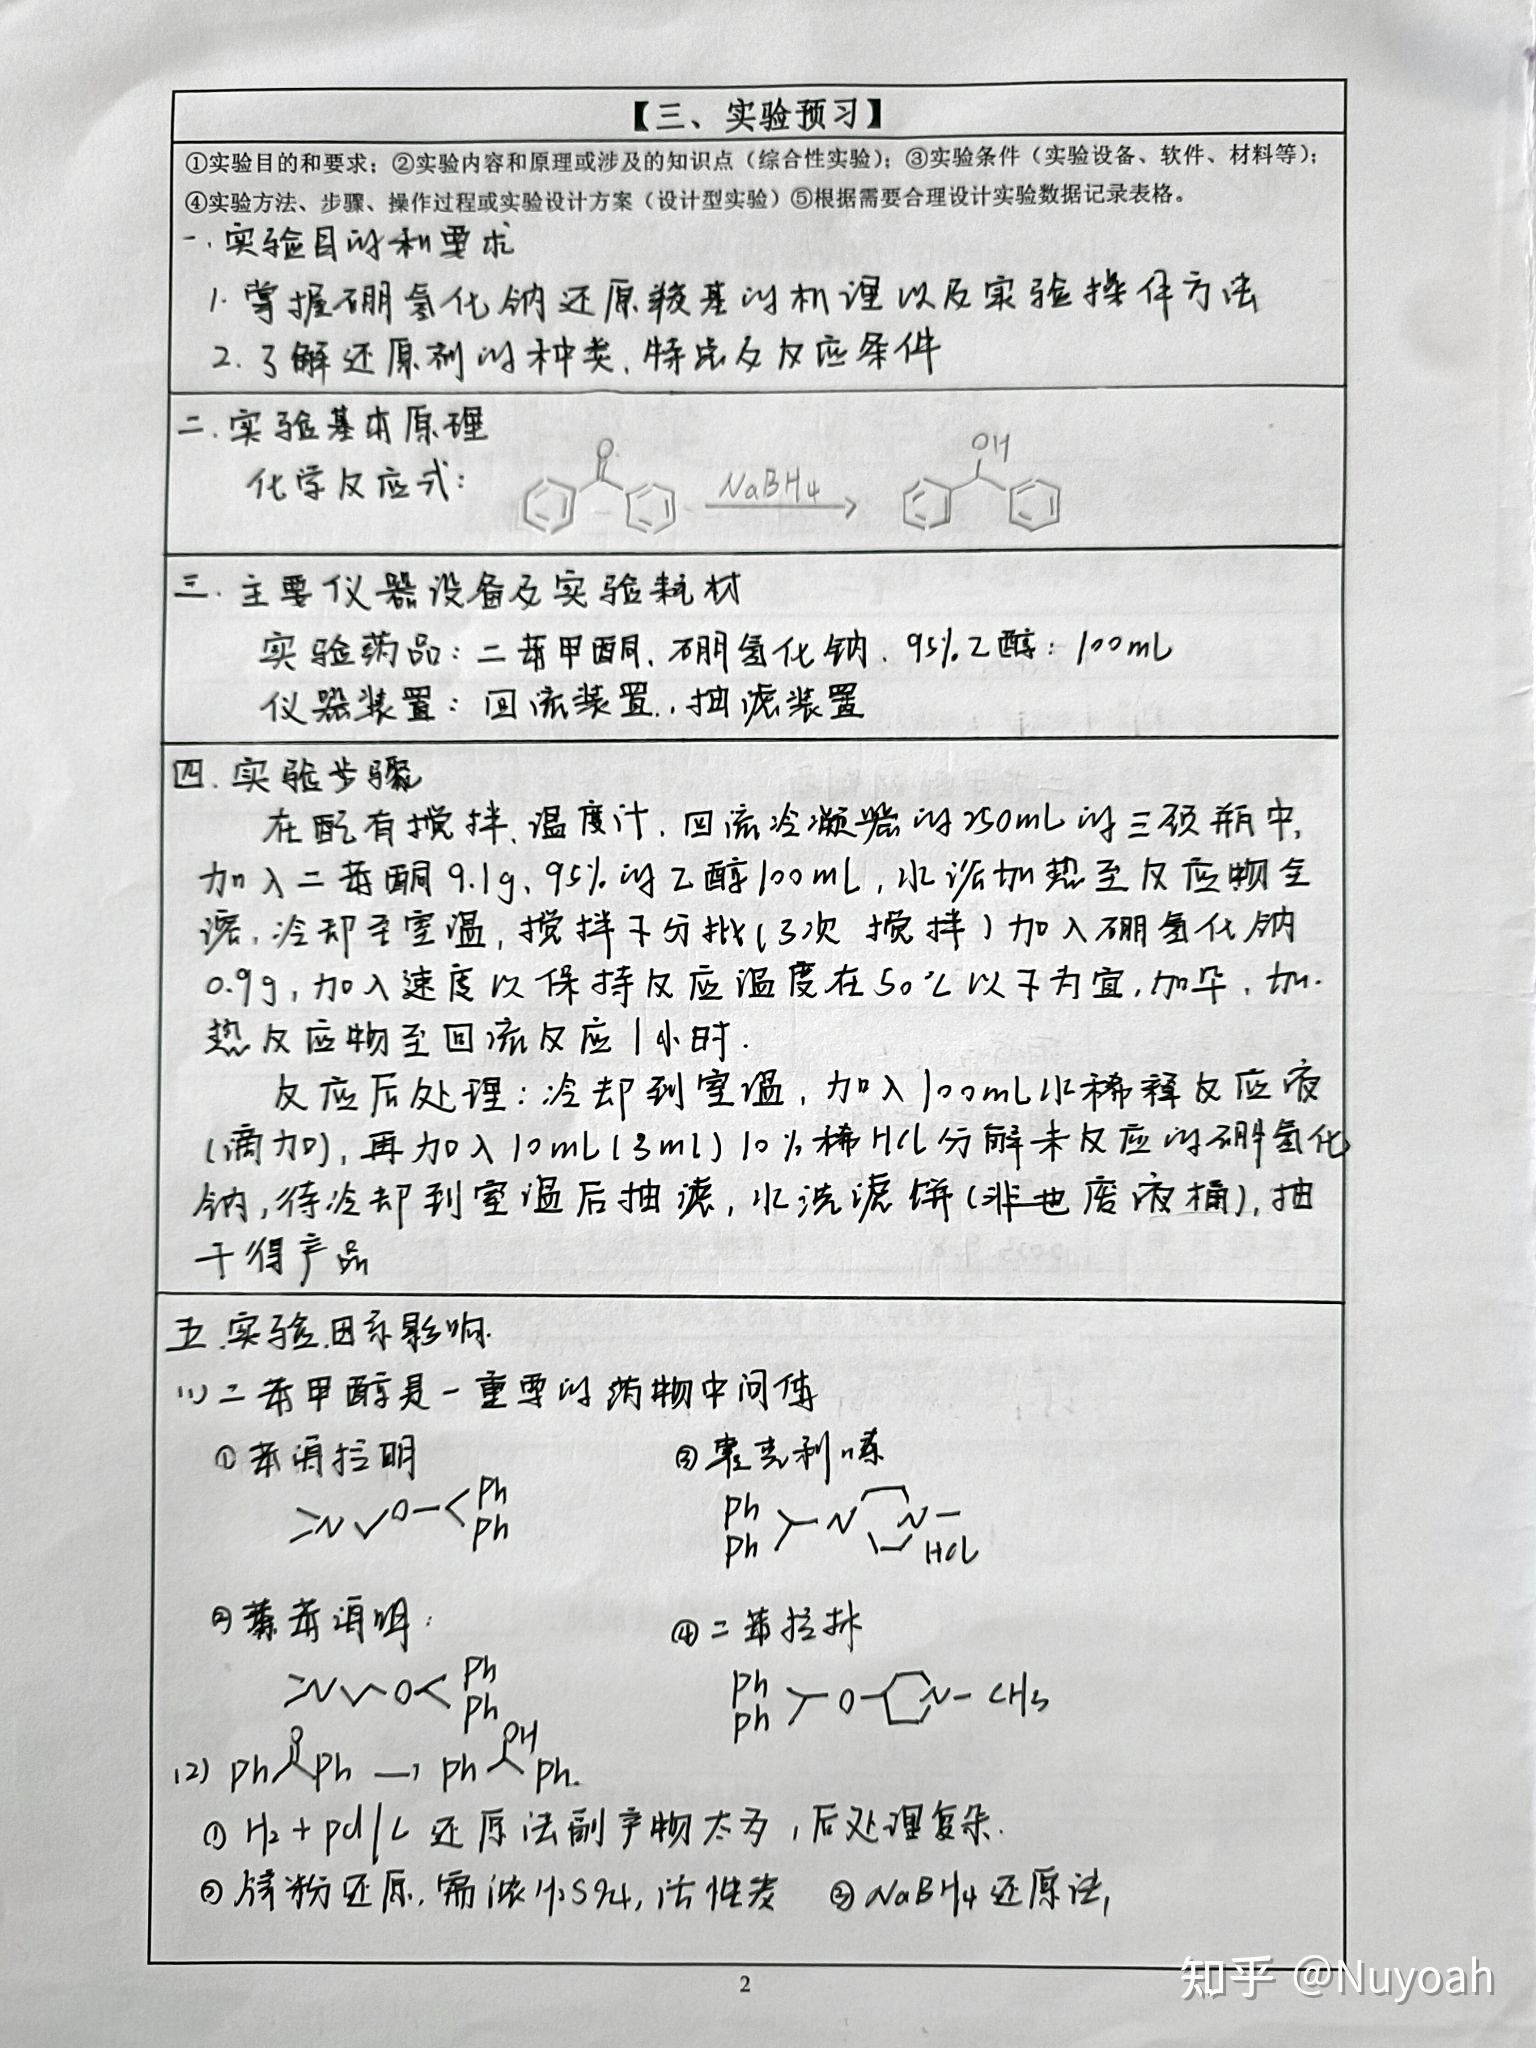 【三、实验预习】
①实验目的和要求；②实验内容和原理或涉及的知识点（综合性实验）；③实验条件（实验设备、软件、材料等）；
④实验方法、步骤、操作过程或实验设计方案（设计型实验）⑤根据需要合理设计实验数据记录表格。
一.实验目的和要求
1.掌握硼氢化钠还原羰基的机理以及实验操作方法
2.了解还原剂的种类、特点及反应条件
二.实验基本原理
化学反应式：
O
NaBH4
OH
三.主要仪器设备及实验耗材
实验药品：二苯甲酮、硼氢化钠、95%乙醇：100mL
仪器装置：回流装置、抽滤装置
四.实验步骤
在配有搅拌、温度计、回流冷凝器的250mL的三颈瓶中,
加入二苯酮9.1g、95%的乙醇100mL,水浴加热至反应物全
溶,冷却至室温,搅拌下分批(3次 搅拌)加入硼氢化钠
0.9g,加入速度以保持反应温度在50℃以下为宜,加毕,加
热反应物至回流反应1小时.
反应后处理：冷却到室温,加入100mL水稀释反应液
(滴加),再加入10mL(3ml)10%稀HCl分解未反应的硼氢化
钠,待冷却到室温后抽滤,水洗滤饼(非也废液桶),抽
干得产品
五.实验因素影响.
(1)二苯甲醇是一重要的药物中间体
①苯海拉明
③塞克利嗪
N O Ph
Ph
Ph
Ph N N HCl
②苯海明：
④二苯拉林
N O Ph
Ph
Ph
Ph O N-CH3
(2) Ph O Ph → Ph OH Ph.
①H2+pd/C还原法副产物太多,后处理复杂.
②锌粉还原,需浓H2SO4,活性炭 ③NaBH4还原法,
2
知乎 @Nuyoah